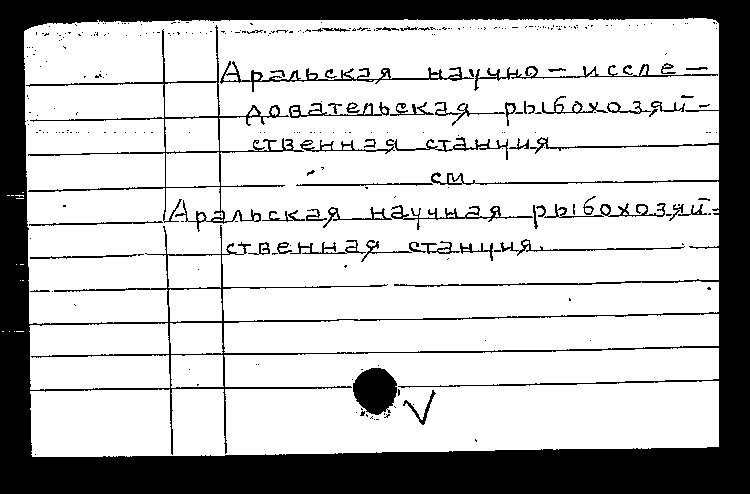 Аральская научно-иссле-
довательская рыбохозяй-
ственная станция.
см.
Аральская научная рыбохозяй-
ственная станция.